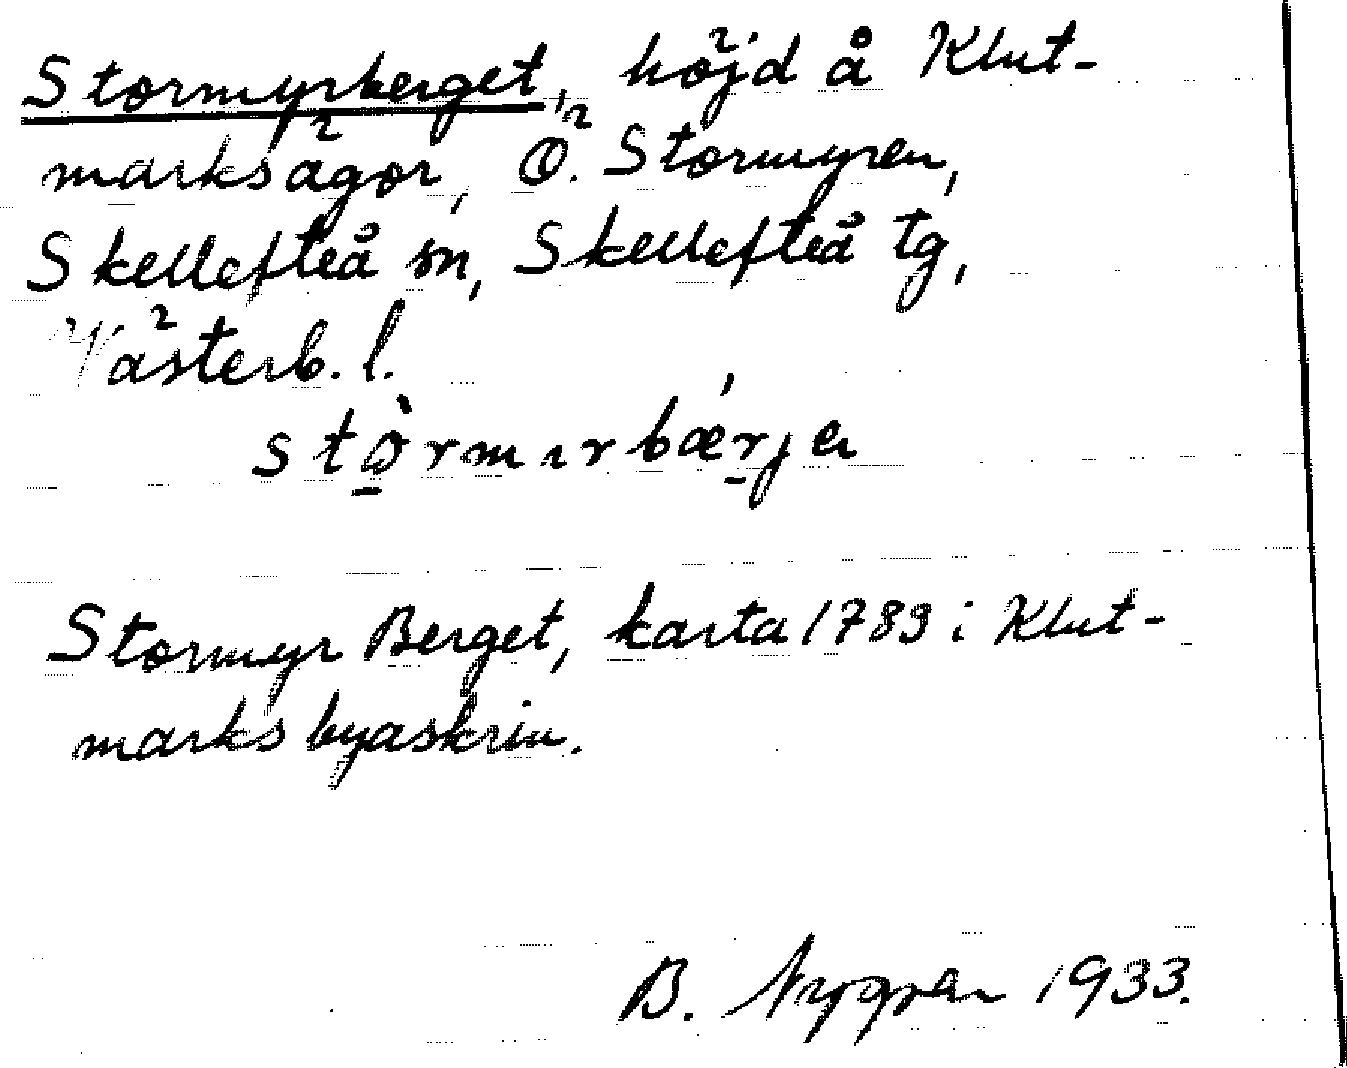 Stormyrberget, höjd å Klut-
marksägor, Ö. Stormyren,
Skellefteå sn, Skellefteå tg,
Västerb. l.
stò̠rmɪrbǽr̠jɐ
Stormyr Berget, karta 1789 i Klut-
marks byaskrin.
B. Nygren 1933.